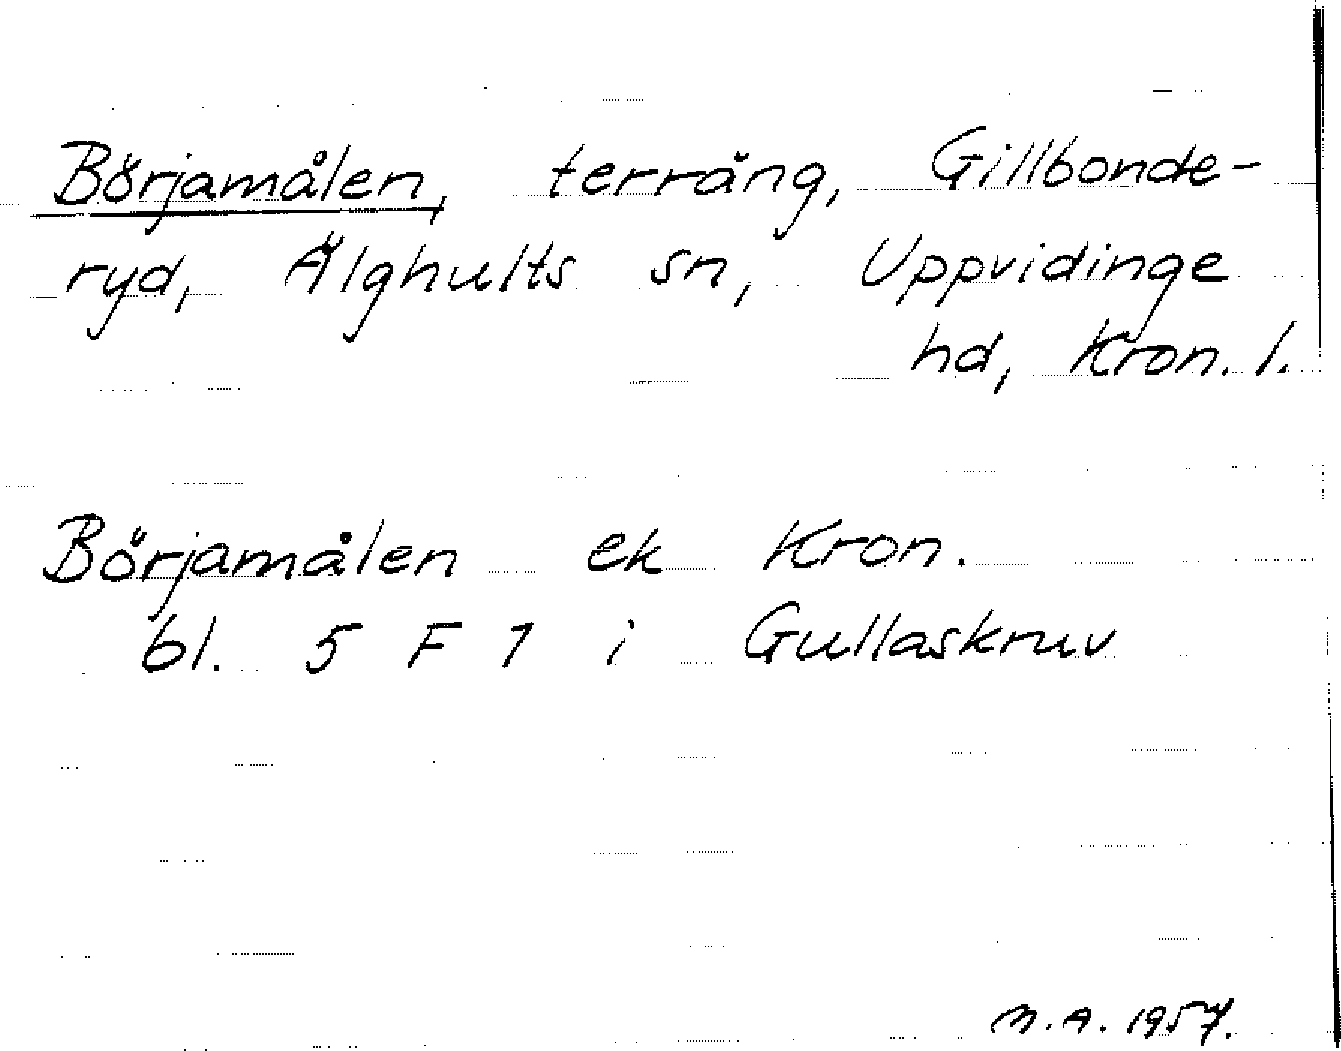 Börjamålen, terräng, Gillbonde-
ryd, Älghults sn, Uppvidinge
hd, Kron. l.
Börjamålen ek Kron.
bl. 5 F 1 i Gullaskruv
M.A. 1957.